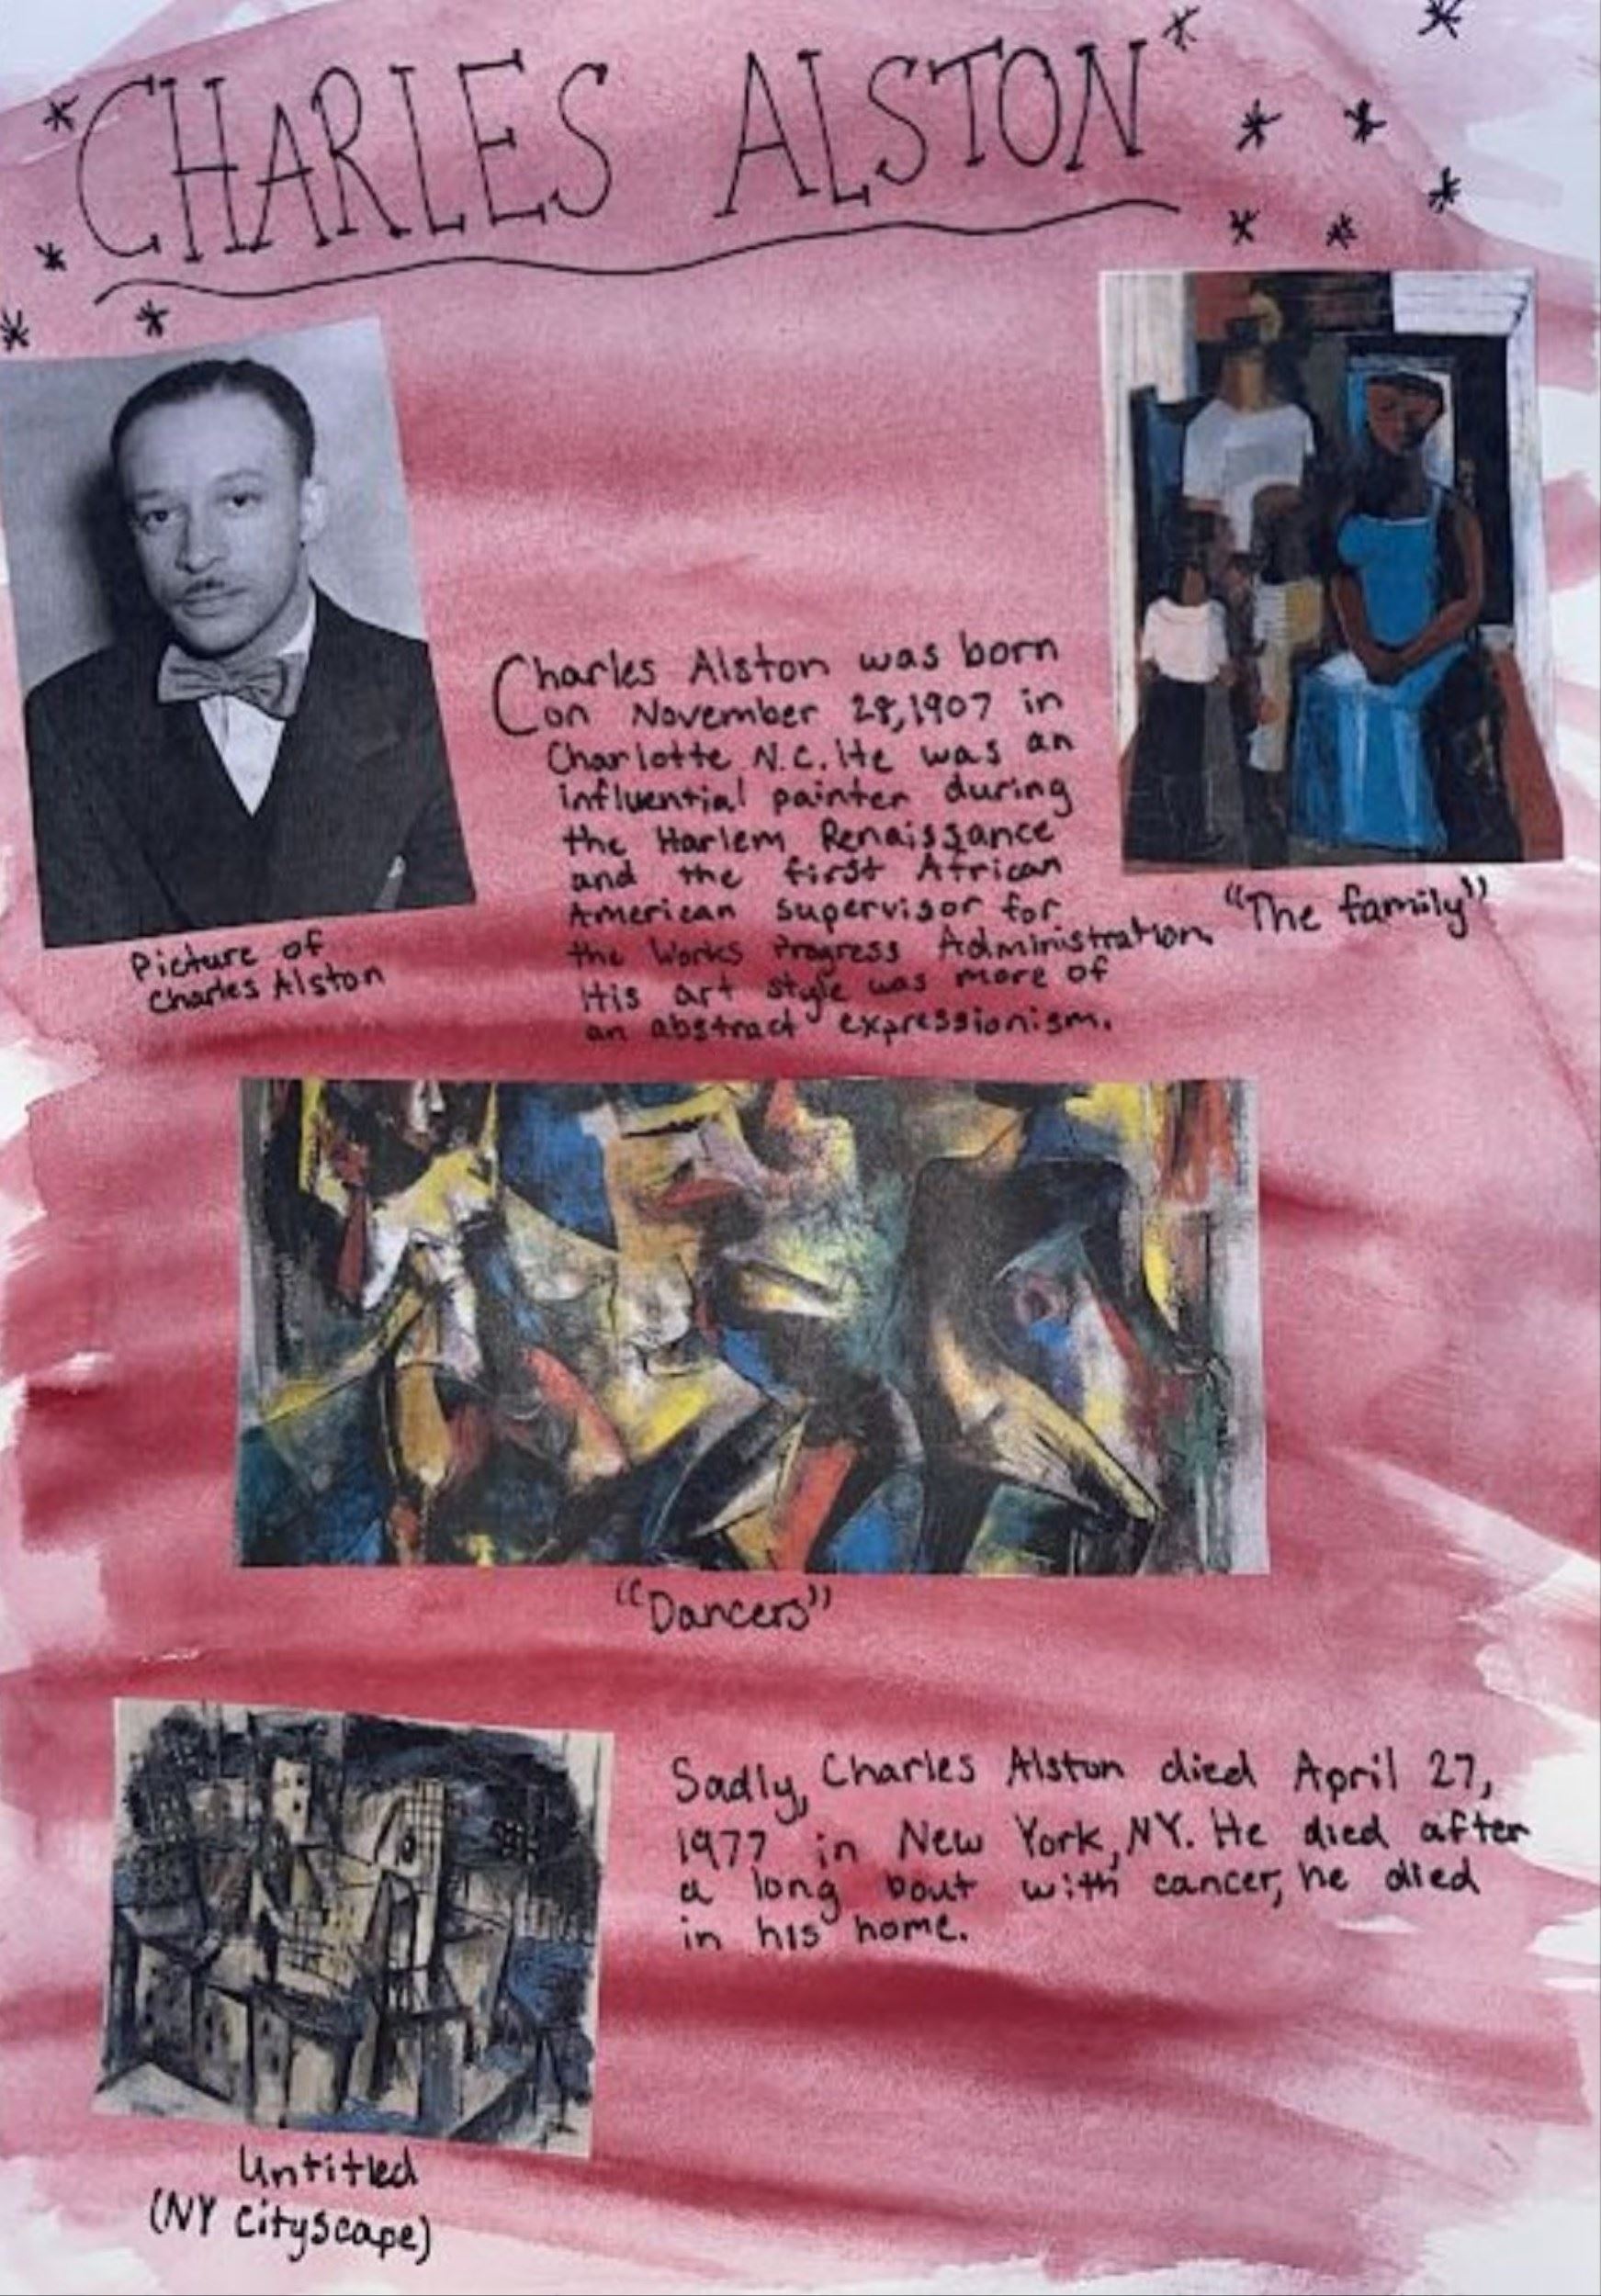 CHARLES ALSTON
Charles Alston was born
on November 28, 1907 in
Charlotte N.C. He was an
influential painter during
the Harlem Renaissance
and the first African
American supervisor for
the Works Progress Administration.
His art style was more of
an abstract expressionism.
Picture of
Charles Alston
"The family"
"Dancers"
Sadly, Charles Alston died April 27,
1977 in New York, NY. He died after
a long bout with cancer, he died
in his home.
Untitled
(NY Cityscape)